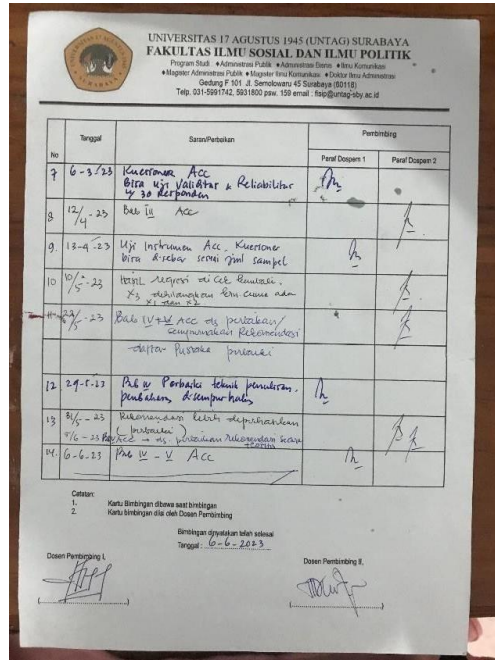 UNIVERSITAS 17 AGUSTUS 1945 (UNTAG) SURABAYA
FAKULTAS ILMU SOSIAL DAN ILMU POLITIK
Program Studi ♦Administrasi Publik ♦Administrasi Bisnis ♦Ilmu Komunikasi
♦Magister Administrasi Publik ♦Magister Ilmu Komunikasi ♦Doktor Ilmu Administrasi
Gedung F 101 Jl. Semolowaru 45 Surabaya (60118)
Telp. 031-5991742, 5931800 psw. 159 email : fisip@untag-sby.ac.id
No Tanggal Saran/Perbaikan Pembimbing
Paraf Dospem 1 Paraf Dospem 2
7 6-3-23 Kuesioner Acc
Bisa Uji Validitas & Reliabilitas
30 Responden
8 12/4-23 Bab III Acc
9. 13-4-23 Uji Instrumen Acc. Kuesioner
bisa disebar sesuai jml sampel
10 10/5-23 Hasil regresi di cek kembali.
X3 dihilangkan krn cuma ada
X1 dan X2
23 Bab IV+V Acc dg perbaikan/
sempurnakan Rekomendasi
daftar Pustaka
12 29-5-23 Bab IV Perbaiki teknik penulisan.
pembahasan disempurnakan
13 31/5-23 Rekomendasi lebih
(perbaiki)
/6-23 Acc dg. perbaikan rekomendasi secara
14. 6-6-23 Bab IV - V Acc
Catatan:
1. Kartu Bimbingan dibawa saat bimbingan
2 Kartu bimbingan diisi oleh Dosen Pembimbing
Bimbingan dinyatakan telah selesai
Tanggal : 6-6-2023
Dosen Pembimbing I, Dosen Pembimbing II,